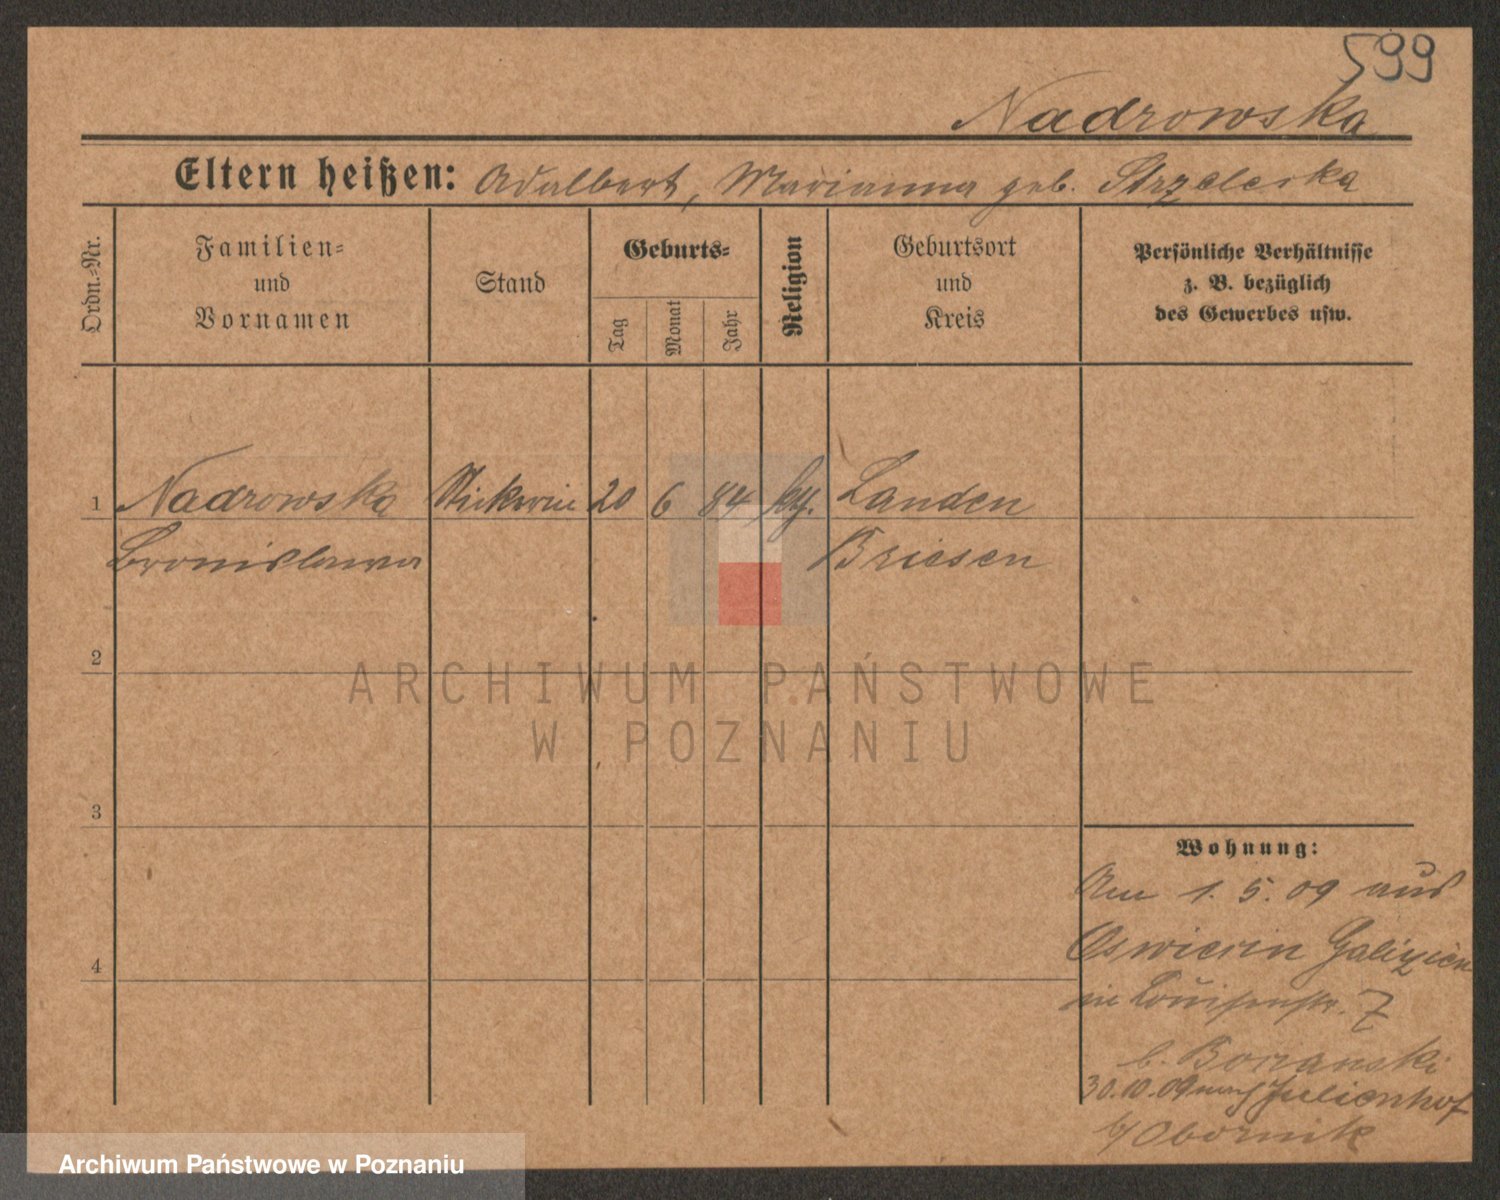 599
Nadrowska
Eltern heißen: Adalbert, Marianna geb. Strzelecka
Ordn.-Nr.
Familien-
und
Vornamen
Stand
Geburts-
Tag
Monat
Jahr
Religion
Geburtsort
und
Kreis
Persönliche Verhältnisse
z. B. bezüglich
des Gewerbes usw.
1 Nadrowska 20 6 84 Landen
Bronislawa Briesen
2
3
4
Wohnung:
Am 1. 5. 09 aus
Oswiecin Galizien
in Louisenstr. 7
b.
30.10.09 nach Julienhof
b/ Obornik
ARCHIWUM PAŃSTWOWE
W POZNANIU
Archiwum Państwowe w Poznaniu